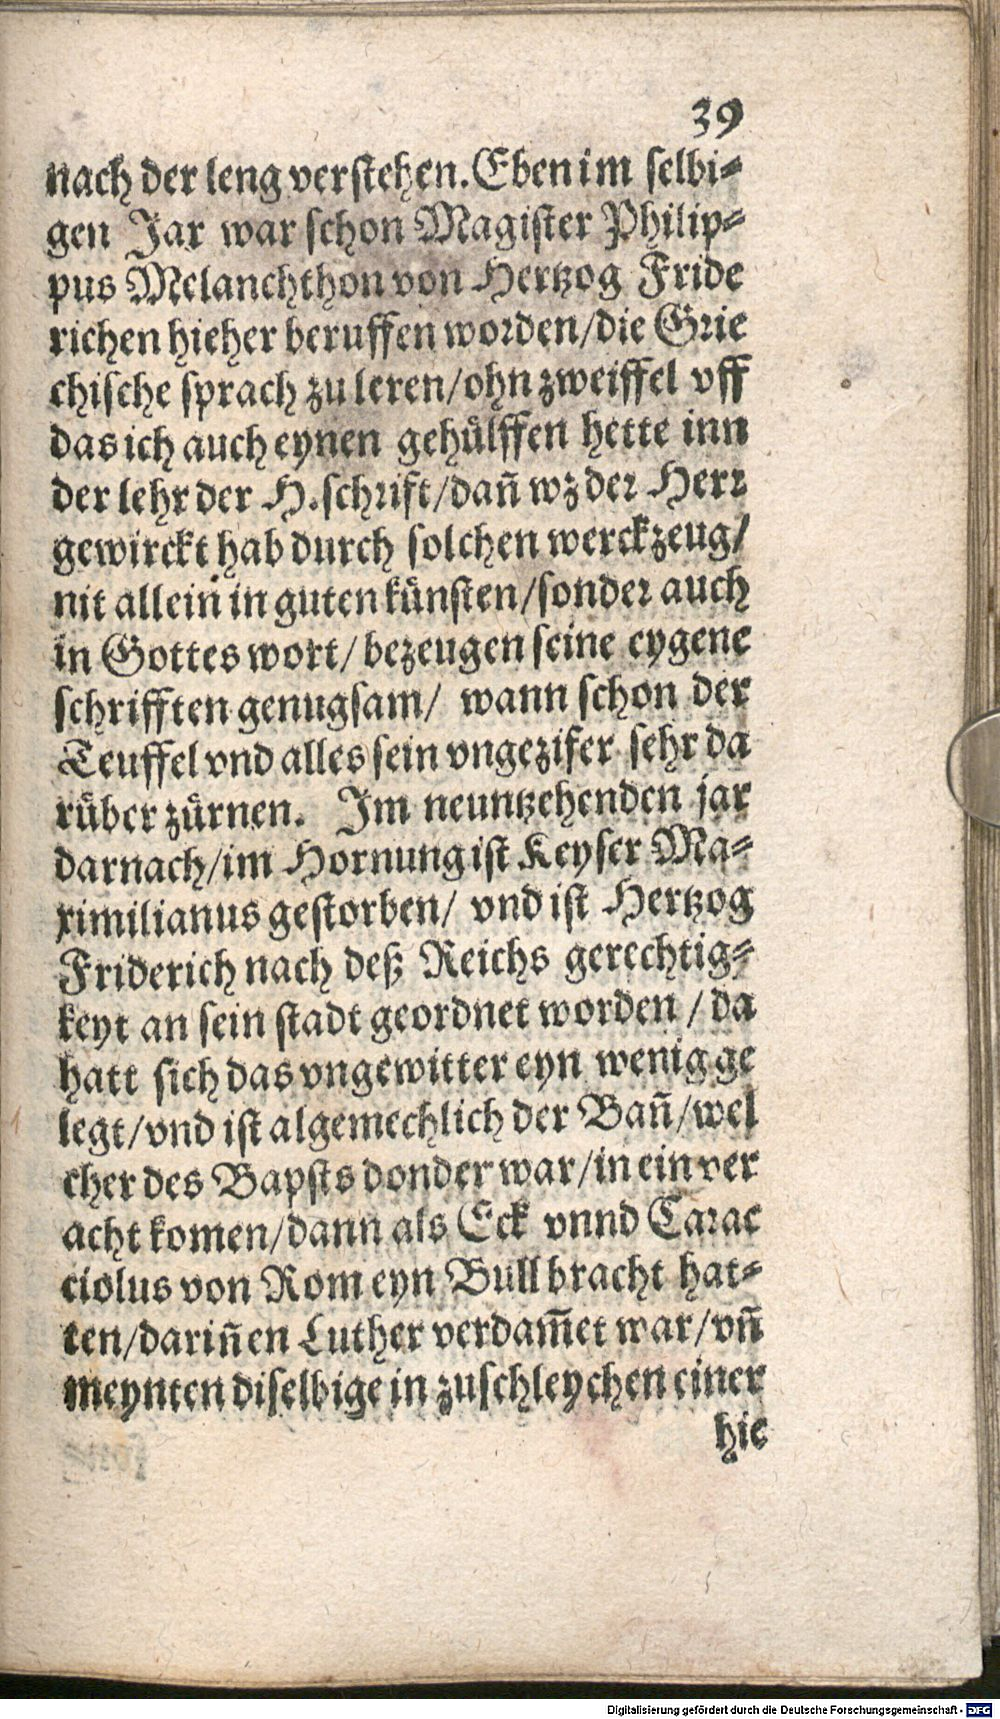 39
nach der leng verstehen. Eben im selbi-
gen Jar war schon Magister Philip-
pus Melanchthon von Hertzog Fride
richen hieher beruffen worden/die Grie
chische sprach zu leren/ohn zweiffel vff
das ich auch eynen gehülffen hette inn
der lehr der H. schrift/dañ wz der Herr
gewirckt hab durch solchen werckzeug/
nit allein in guten künsten/sonder auch
in Gottes wort/ bezeugen seine eygene
schrifften genugsam/ wann schon der
Teuffel vnd alles sein vngezifer sehr da
rüber zürnen. Im neuntzehenden jar
darnach/im Hornung ist Keyser Ma-
ximilianus gestorben/ vnd ist Hertzog
Friderich nach deß Reichs gerechtig-
keyt an sein stadt geordnet worden / da
hatt sich das vngewitter eyn wenig ge
legt/vnd ist algemechlich der Bañ/wel
cher des Bapsts donder war/in ein ver
acht komen/dann als Eck vnnd Carac
ciolus von Rom eyn Bull bracht hat-
ten/dariñen Luther verdam̃et war/vñ
meynten diselbige in zuschleychen einer
hie
Digitalisierung gefördert durch die Deutsche Forschungsgemeinschaft - DFG